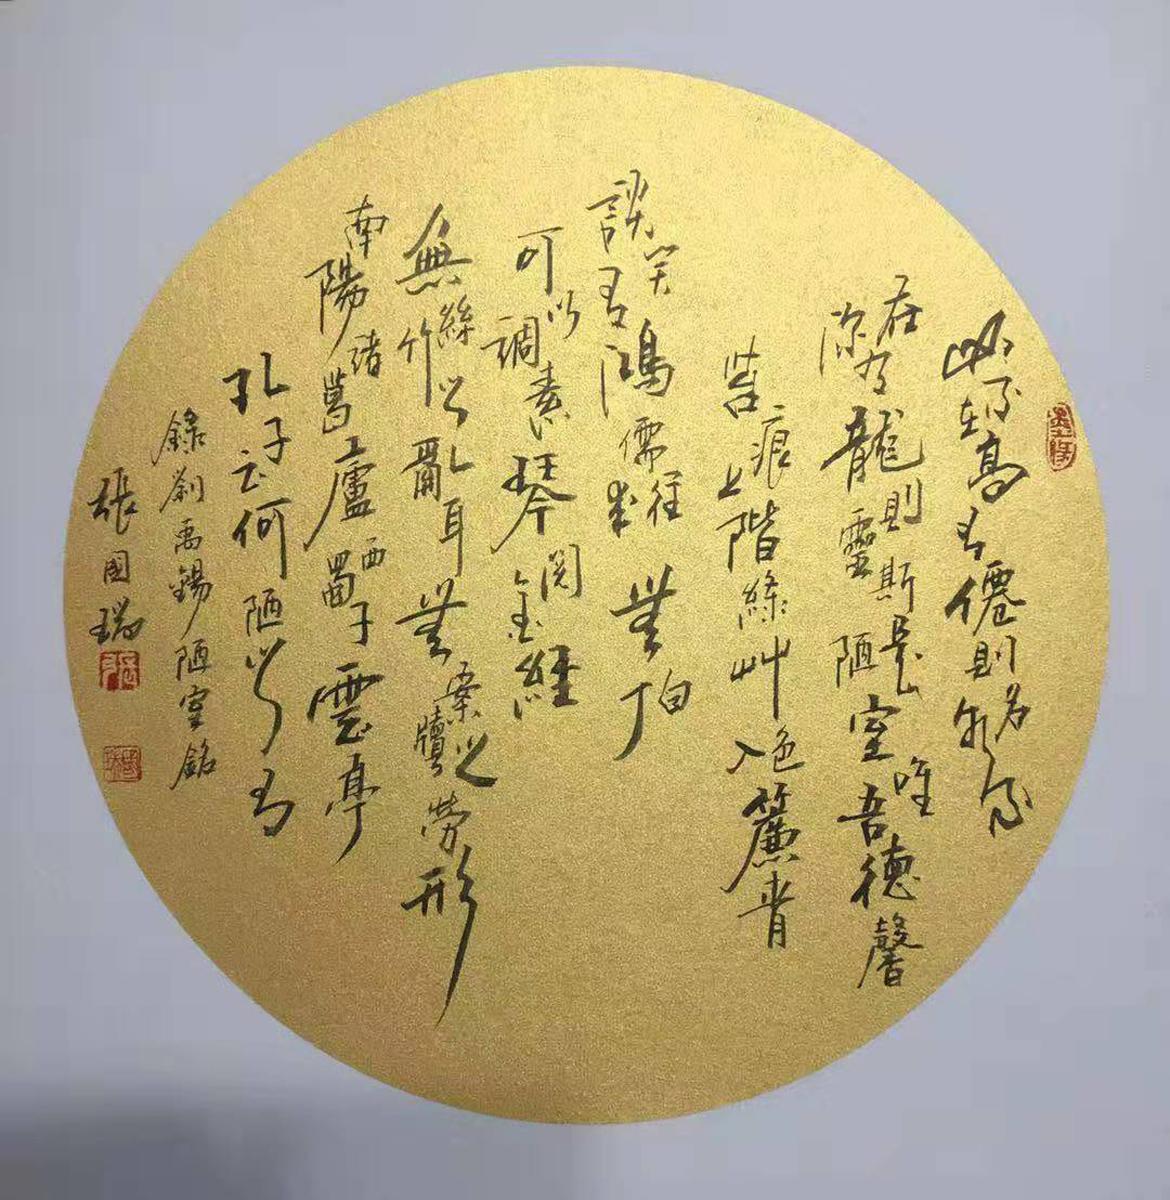 山不在高有僊則名水不
在深有龍則靈斯是陋室唯吾德馨
苔痕上階綠艸色入簾青
談笑有鴻儒往來無白丁
可以調素琴閱金經
無絲竹之亂耳無案牘之勞形
南陽諸葛廬西蜀子雲亭
孔子云何陋之有
錄劉禹錫陋室銘
張國瑞